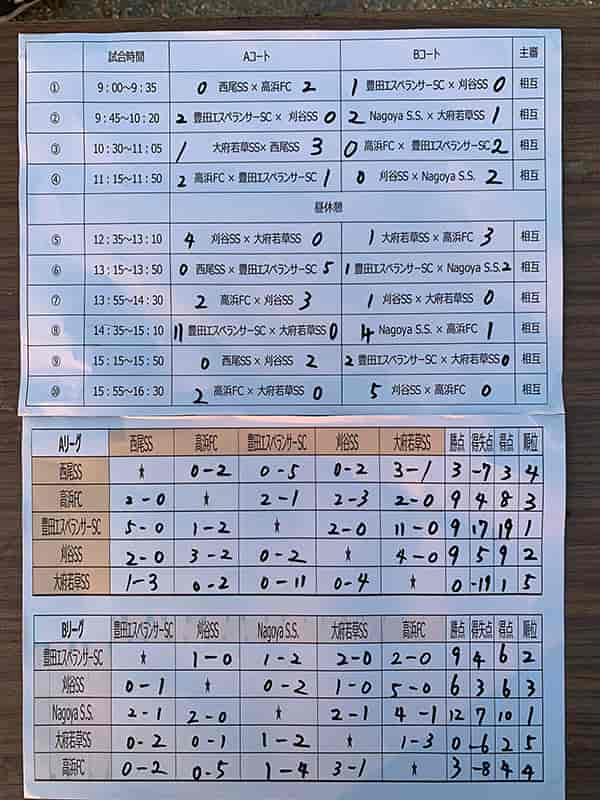 試合時間 Aコート Bコート 主審
① 9:00～9:35 0 西尾SS × 高浜FC 2 1 豊田エスペランサーSC × 刈谷SS 0 相互
② 9:45～10:20 2 豊田エスペランサーSC × 刈谷SS 0 2 Nagoya S.S. × 大府若草SS 1 相互
③ 10:30～11:05 1 大府若草SS× 西尾SS 3 0 高浜FC × 豊田エスペランサーSC 2 相互
④ 11:15～11:50 2 高浜FC × 豊田エスペランサーSC 1 0 刈谷SS × Nagoya S.S. 2 相互
昼休憩
⑤ 12:35～13:10 4 刈谷SS × 大府若草SS 0 1 大府若草SS × 高浜FC 3 相互
⑥ 13:15～13:50 0 西尾SS × 豊田エスペランサーSC 5 1 豊田エスペランサーSC × Nagoya S.S. 2 相互
⑦ 13:55～14:30 2 高浜FC × 刈谷SS 3 1 刈谷SS × 大府若草SS 0 相互
⑧ 14:35～15:10 11 豊田エスペランサーSC × 大府若草SS 0 4 Nagoya S.S. × 高浜FC 1 相互
⑨ 15:15～15:50 0 西尾SS × 刈谷SS 2 2 豊田エスペランサーSC × 大府若草SS 0 相互
⑩ 15:55～16:30 2 高浜FC × 大府若草SS 0 5 刈谷SS × 高浜FC 0 相互
Aリーグ 西尾SS 高浜FC 豊田エスペランサーSC 刈谷SS 大府若草SS 勝点 得失点 得点 順位
西尾SS ★ 0-2 0-5 0-2 3-1 3 -7 3 4
高浜FC 2-0 ★ 2-1 2-3 2-0 9 4 8 3
豊田エスペランサーSC 5-0 1-2 ★ 2-0 11-0 9 17 19 1
刈谷SS 2-0 3-2 0-2 ★ 4-0 9 5 9 2
大府若草SS 1-3 0-2 0-11 0-4 ★ 0 -19 1 5
Bリーグ 豊田エスペランサーSC 刈谷SS Nagoya S.S. 大府若草SS 高浜FC 勝点 得失点 得点 順位
豊田エスペランサーSC ★ 1-0 1-2 2-0 2-0 9 4 6 2
刈谷SS 0-1 ★ 0-2 1-0 5-0 6 3 6 3
Nagoya S.S. 2-1 2-0 ★ 2-1 4-1 12 7 10 1
大府若草SS 0-2 0-1 1-2 ★ 1-3 0 -6 2 5
高浜FC 0-2 0-5 1-4 3-1 ★ 3 -8 4 4